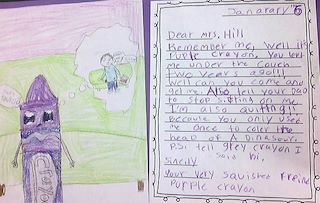 January 6
Dear Mrs. Hill
Remember me, Well it's
Purple crayon. You left
me under the couch
Two years ago!!!
Well can you come and
get me. Also tell your Dad
to stop sitting on me
I'm also quiting
Because you only used
me once to coler the
head of A Dinasour.
P.S. tell grey crayon I
said hi.
Sincily
Your very squished freind
Purple crayon